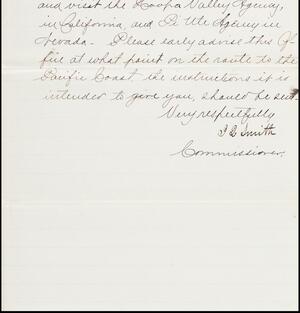 and visit the Hoopa Valley Agency,
in California, and Pi Ute Agency in
Nevada. Please early advise this Of-
fice at what point on the route to the
Pacific Coast the instructions it is
intended to give you, should be sent.
Very respectfully
J Q Smith
Commissioner.